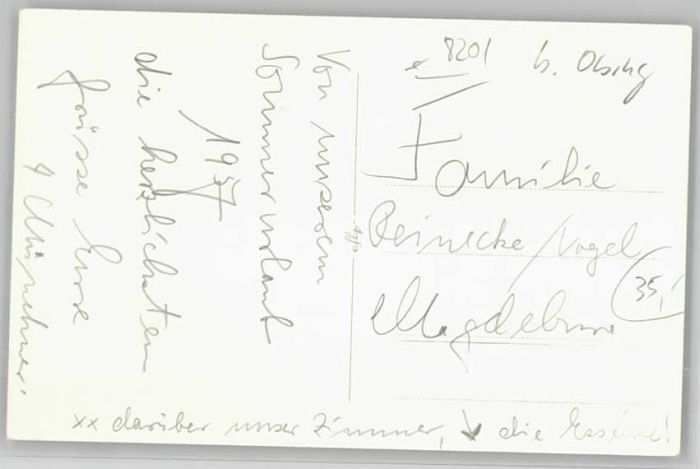 Von unserem
Sommerurlaub
1957
die herzlichsten
Grüsse Eure
4 Münchner.
8201 b. Obing
Familie
Reinecke/Vogel
Magdeburg
35,-
xx darüber unser Zimmer, ↘ die Essecke!